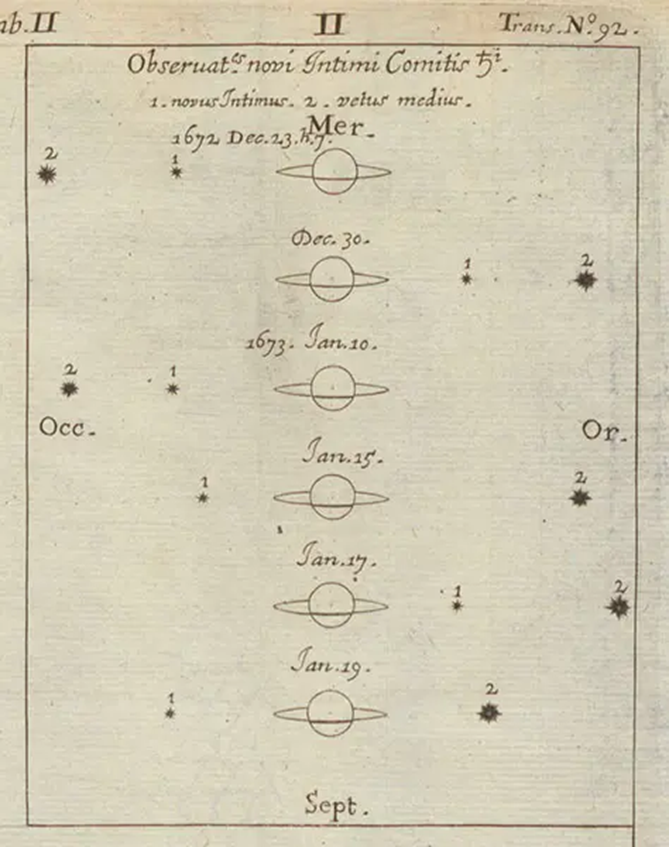 ab. II II Trans. N.º 92.
Obseruat.es novi Intimi Comitis ♄i.
1. novus Intimus. 2. vetus medius.
Mer.
1672 Dec. 23. h. 7.
2 1
Dec. 30.
1 2
1673. Jan. 10.
2 1
Occ. Or.
Jan. 15.
1 2
Jan. 17.
1 2
Jan. 19.
1 2
Sept.